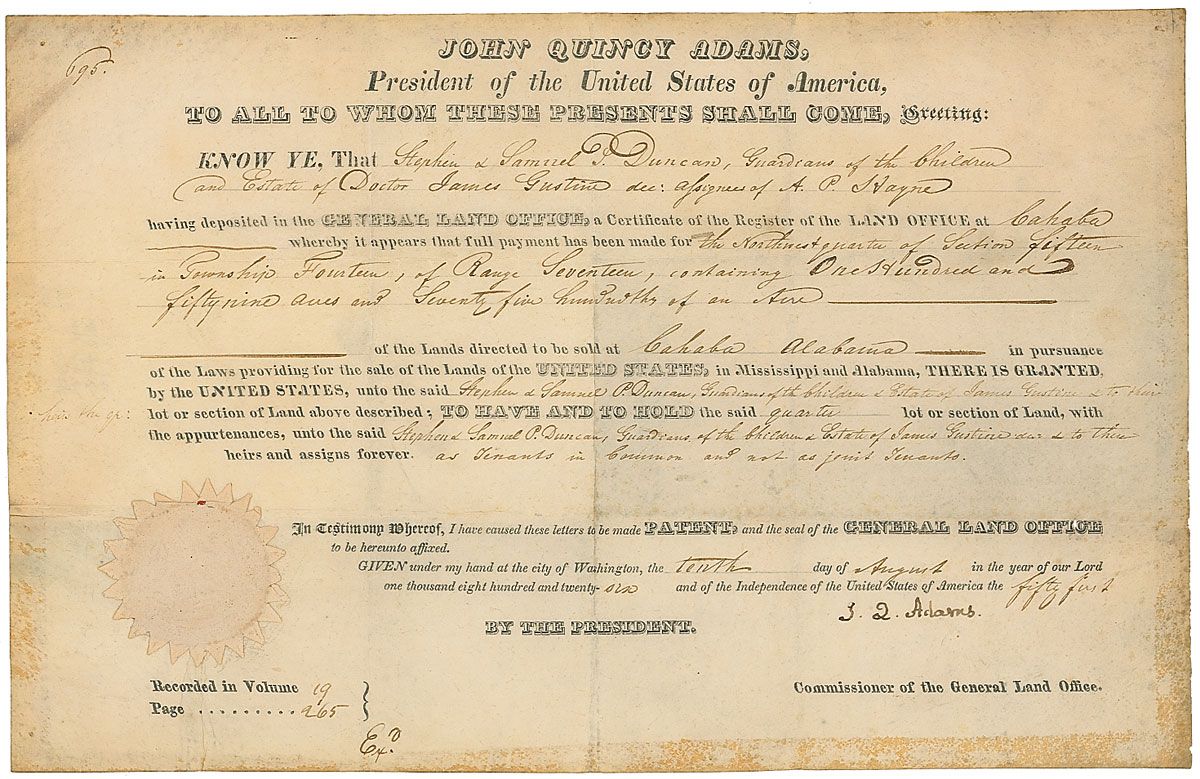 695.
JOHN QUINCY ADAMS,
President of the United States of America,
TO ALL TO WHOM THESE PRESENTS SHALL COME, Greeting:
KNOW YE, That Stephen & Samuel P. Duncan, Guardians of the Children
and Estate of Doctor James Gustine dec: assignees of A. P. Hayne
having deposited in the GENERAL LAND OFFICE, a Certificate of the Register of the LAND OFFICE at Cahaba
whereby it appears that full payment has been made for the Northwest quarter of Section fifteen
in Township Fourteen, of Range Seventeen, containing One Hundred and
fifty nine acres and Seventy five hundredths of an Acre
of the Lands directed to be sold at Cahaba Alabama in pursuance
of the Laws providing for the sale of the Lands of the UNITED STATES, in Mississippi and Alabama, THERE IS GRANTED,
by the UNITED STATES, unto the said Stephen & Samuel P. Duncan, Guardians of the Children & Estate of James Gustine & to their
lot or section of Land above described; TO HAVE AND TO HOLD the said quarter lot or section of Land, with
the appurtenances, unto the said Stephen & Samuel P. Duncan, Guardians of the Children & Estate of James Gustine dec: & to their
heirs and assigns forever. as Tenants in Common and not as joint Tenants.
In Testimony Whereof, I have caused these letters to be made PATENT, and the seal of the GENERAL LAND OFFICE
to be hereunto affixed.
GIVEN under my hand at the city of Washington, the tenth day of August in the year of our Lord
one thousand eight hundred and twenty-six and of the Independence of the United States of America the fifty first
J. Q. Adams.
BY THE PRESIDENT.
Recorded in Volume 19
Page ......... 265
Commissioner of the General Land Office.
Exd